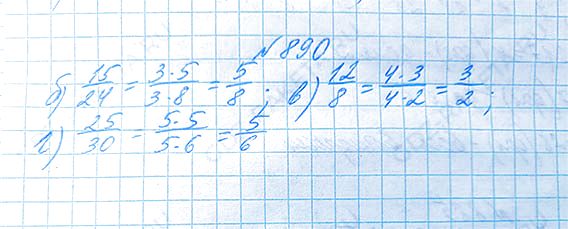 №890
б) 15/24 = 3·5/3·8 = 5/8; в) 12/8 = 4·3/4·2 = 3/2;
г) 25/30 = 5·5/5·6 = 5/6